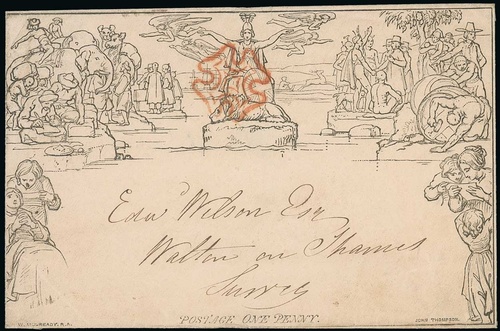 Edwd Wilson Esq
Walton on Thames
Surrey
POSTAGE ONE PENNY.
W. MULREADY, R.A.
JOHN THOMPSON.